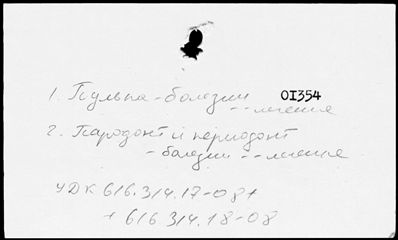 1. Пульпа - болезни 01354
-- лечение
2. Пародонт и периодонт
- болезни -- лечение
УДК 616.314.17-08+
+ 616.314.18-08